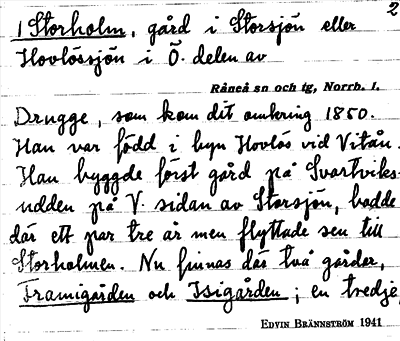 2
1 Storholm, gård i Storsjön eller
Hovlössjön i Ö. delen av
Råneå sn och tg, Norrb. l.
Drugge, som kom dit omkring 1850.
Han var född i byn Hovlös vid Vitån.
Han byggde först gård på Svartviks-
udden på V. sidan av Storsjön, bodde
där ett par tre år men flyttade sen till
Storholmen. Nu finnas där två gårdar,
Framigården och Isigården; en tredje
EDVIN BRÄNNSTRÖM 1941